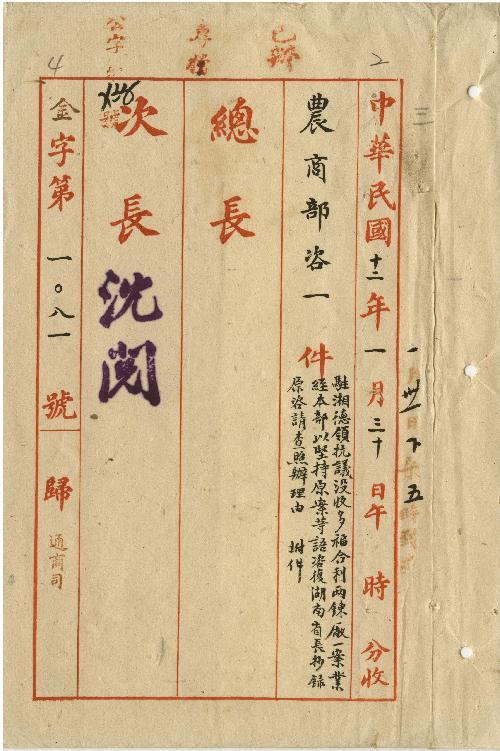 已辦
專檔
公字
號
2
4
三
中華民國十二年一月三十日午 時 分收
卅一日下午五時
農商部咨一件
駐湘德領抗議沒收多福合利兩鍊廠一案業
經本部以堅持原案等語咨復湖南省長抄錄
原咨請查照辦理由 附件
總長
次長
沈閱
金字第一〇八一號歸
通商司